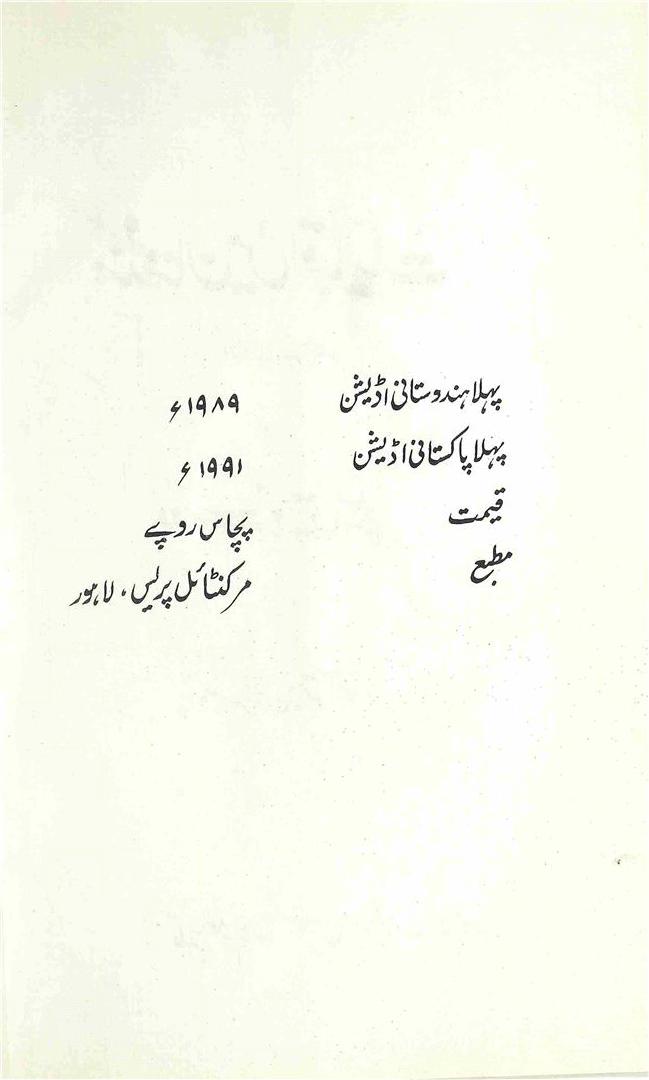 پہلا ہندوستانی اڈیشن ۱۹۸۹ء
پہلا پاکستانی اڈیشن ۱۹۹۱ء
قیمت پچاس روپے
مطبع مرکنٹائل پریس، لاہور